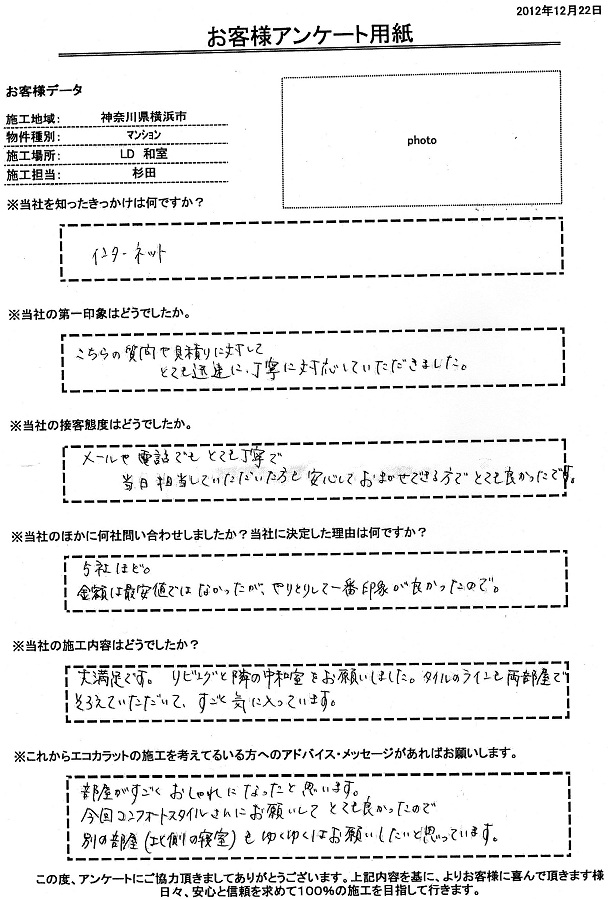 2012年12月22日
お客様アンケート用紙
お客様データ
施工地域： 神奈川県横浜市
物件種別： マンション
施工場所： LD 和室
施工担当： 杉田
photo
※当社を知ったきっかけは何ですか？
インターネット
※当社の第一印象はどうでしたか。
こちらの質問や見積りに対して
とても迅速に、丁寧に対応していただきました。
※当社の接客態度はどうでしたか。
メールや電話でもとても丁寧で
当日担当していただいた方も安心しておまかせできる方でとても良かったです。
※当社のほかに何社問い合わせしましたか？当社に決定した理由は何ですか？
5社ほど。
金額は最安値ではなかったが、やりとりして一番印象が良かったので。
※当社の施工内容はどうでしたか？
大満足です。リビングと隣の中和室をお願いしました。タイルのラインも両部屋で
そろえていただいて、すごく気に入っています。
※これからエコカラットの施工を考えてるいる方へのアドバイス・メッセージがあればお願いします。
部屋がすごくおしゃれになったと思います。
今回コンフォートスタイルさんにお願いしてとても良かったので
別の部屋(北側の寝室)もゆくゆくはお願いしたいと思っています。
この度、アンケートにご協力頂きましてありがとうございます。上記内容を基に、よりお客様に喜んで頂きます様
日々、安心と信頼を求めて100%の施工を目指して行きます。